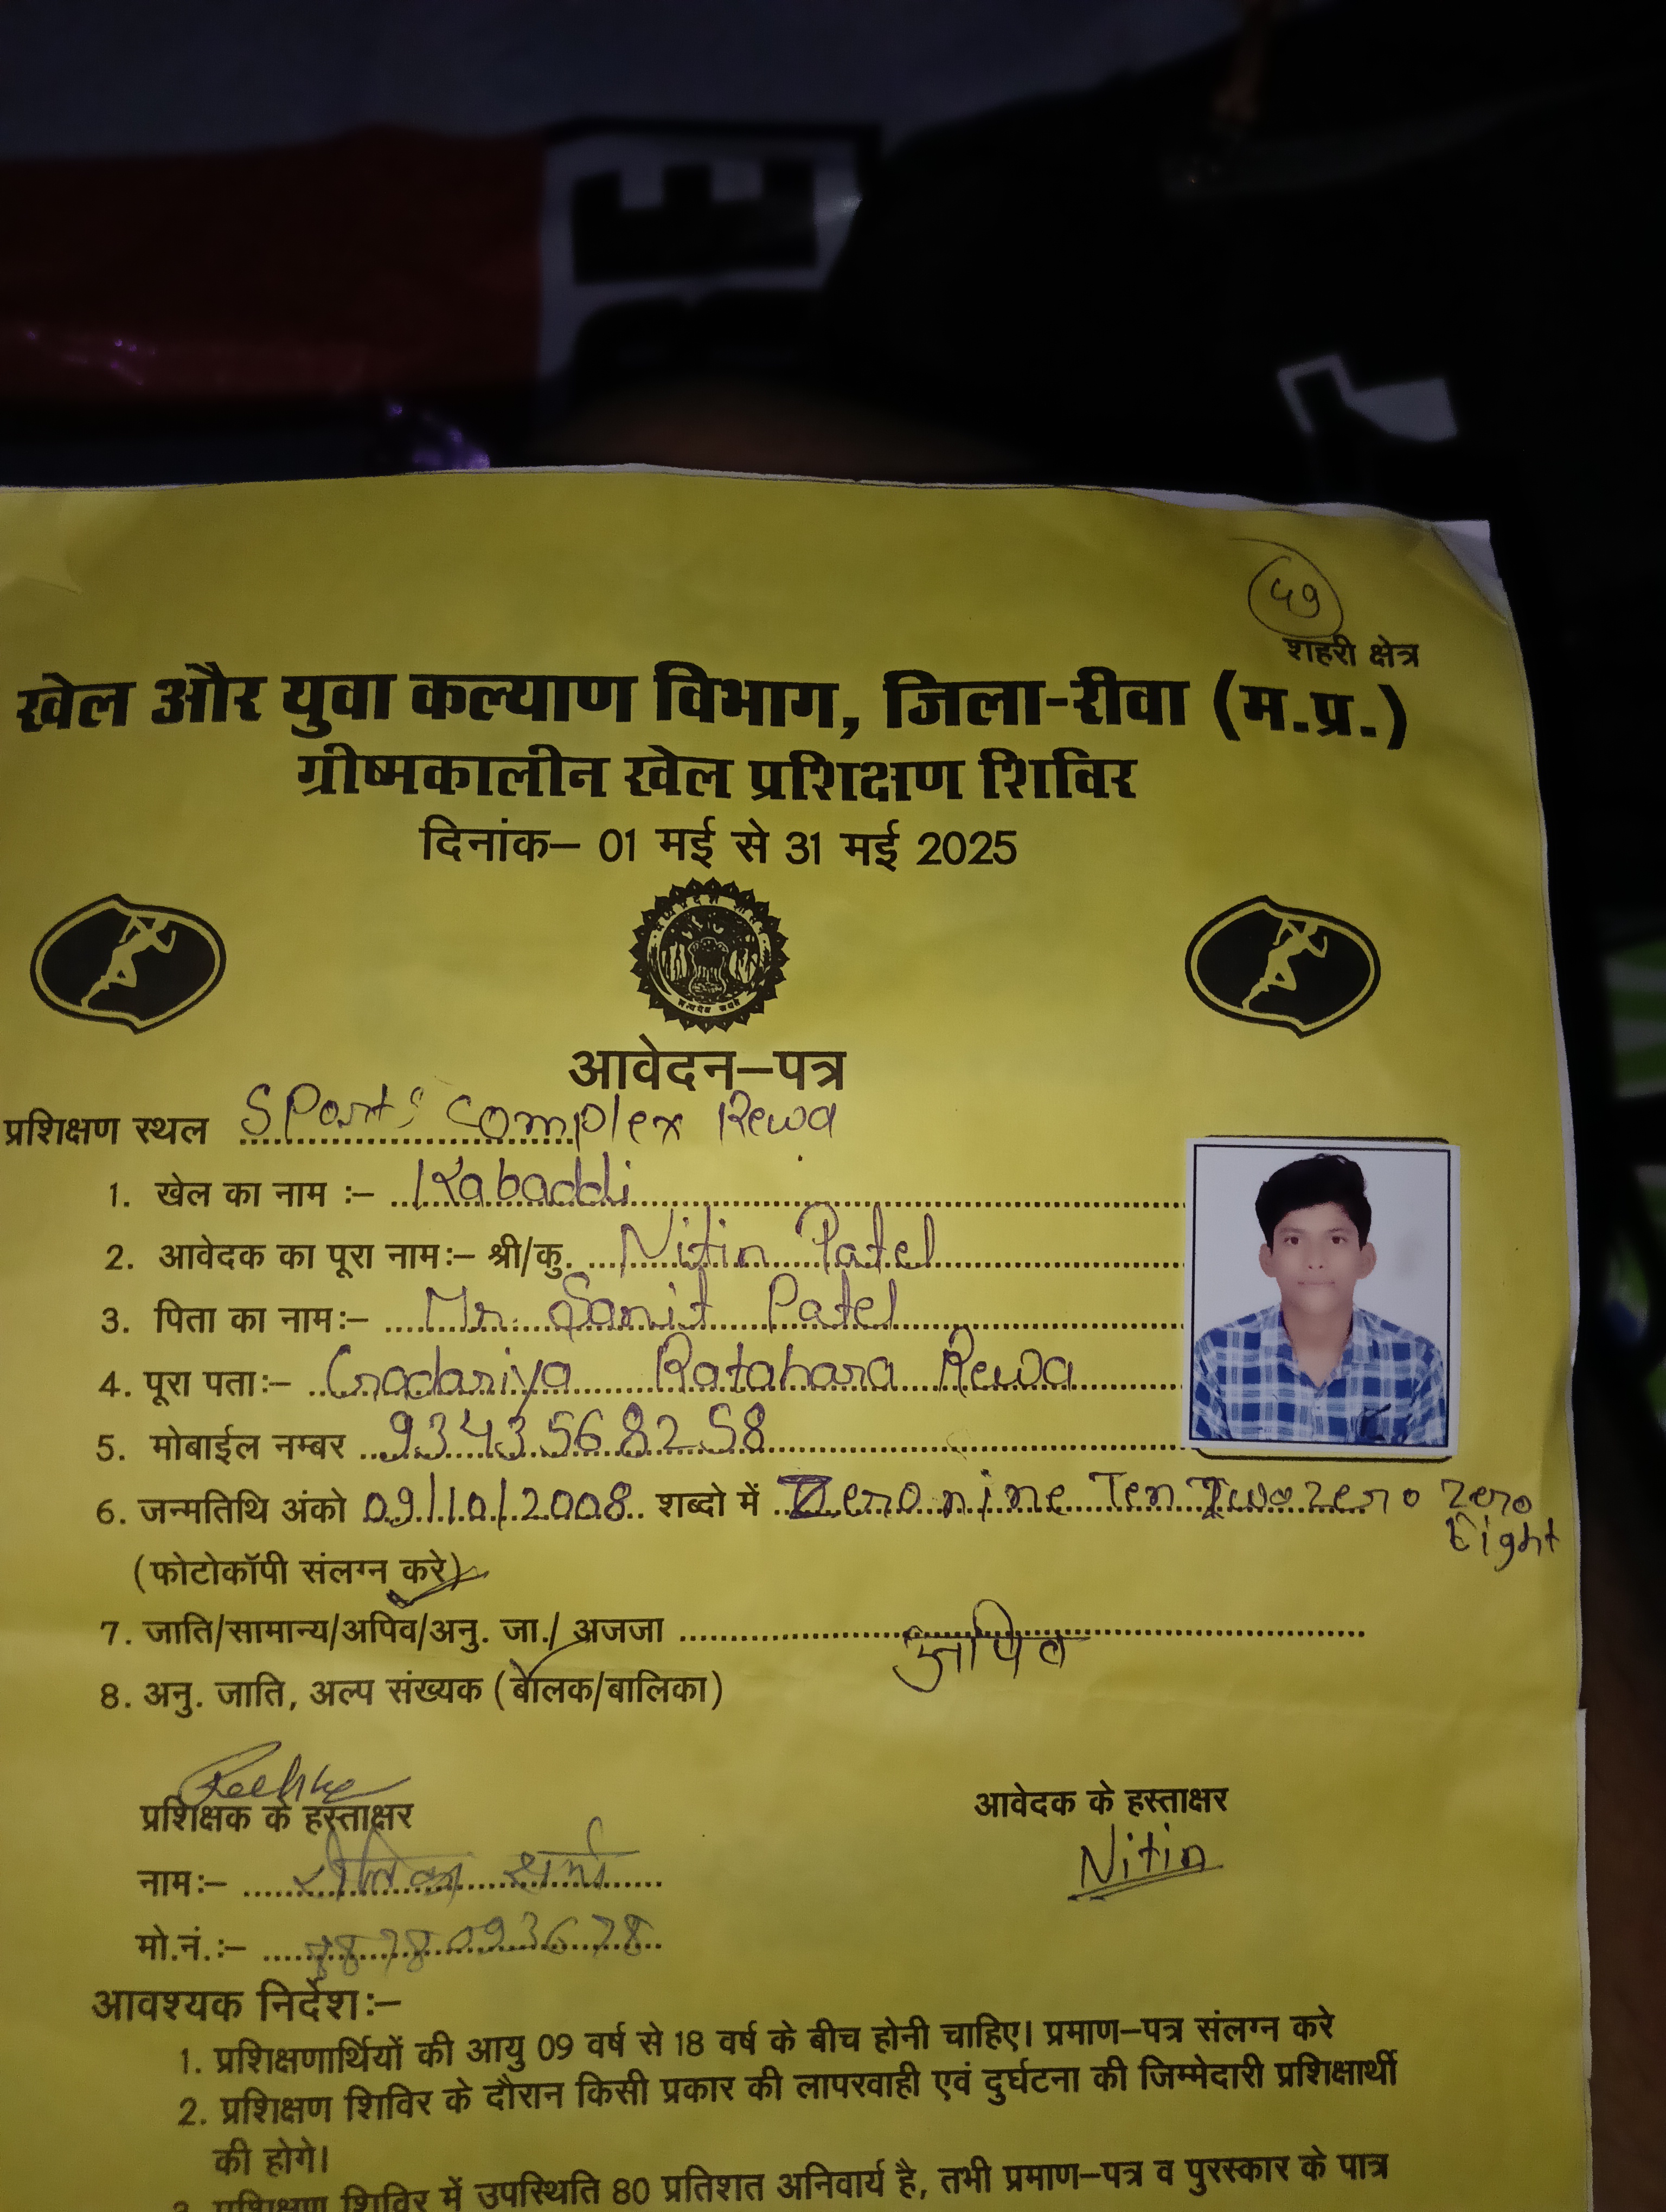 49
शहरी क्षेत्र
खेल और युवा कल्याण विभाग, जिला-रीवा (म.प्र.)
ग्रीष्मकालीन खेल प्रशिक्षण शिविर
दिनांक– 01 मई से 31 मई 2025
आवेदन–पत्र
प्रशिक्षण स्थल Sports Complex Rewa
1. खेल का नाम :– Kabaddi
2. आवेदक का पूरा नाम:– श्री/कु. Nitin Patel
3. पिता का नाम:– Mr. Sanit Patel
4. पूरा पता:– Gradariya Ratahara Rewa
5. मोबाईल नम्बर 9343568258
6. जन्मतिथि अंको 09/10/2008 शब्दो में Zero nine Ten Two zero Zero Eight
(फोटोकॉपी संलग्न करे)
7. जाति/सामान्य/अपिव/अनु. जा./ अजजा अपिव
8. अनु. जाति, अल्प संख्यक (बालक/बालिका)
प्रशिक्षक के हस्ताक्षर
आवेदक के हस्ताक्षर
Nitin
नाम:– शर्मा
मो.नं.:– 7878093678
आवश्यक निर्देश:–
1. प्रशिक्षणार्थियों की आयु 09 वर्ष से 18 वर्ष के बीच होनी चाहिए। प्रमाण–पत्र संलग्न करे
2. प्रशिक्षण शिविर के दौरान किसी प्रकार की लापरवाही एवं दुर्घटना की जिम्मेदारी प्रशिक्षार्थी
की होगे।
3. प्रशिक्षण शिविर में उपस्थिति 80 प्रतिशत अनिवार्य है, तभी प्रमाण–पत्र व पुरस्कार के पात्र